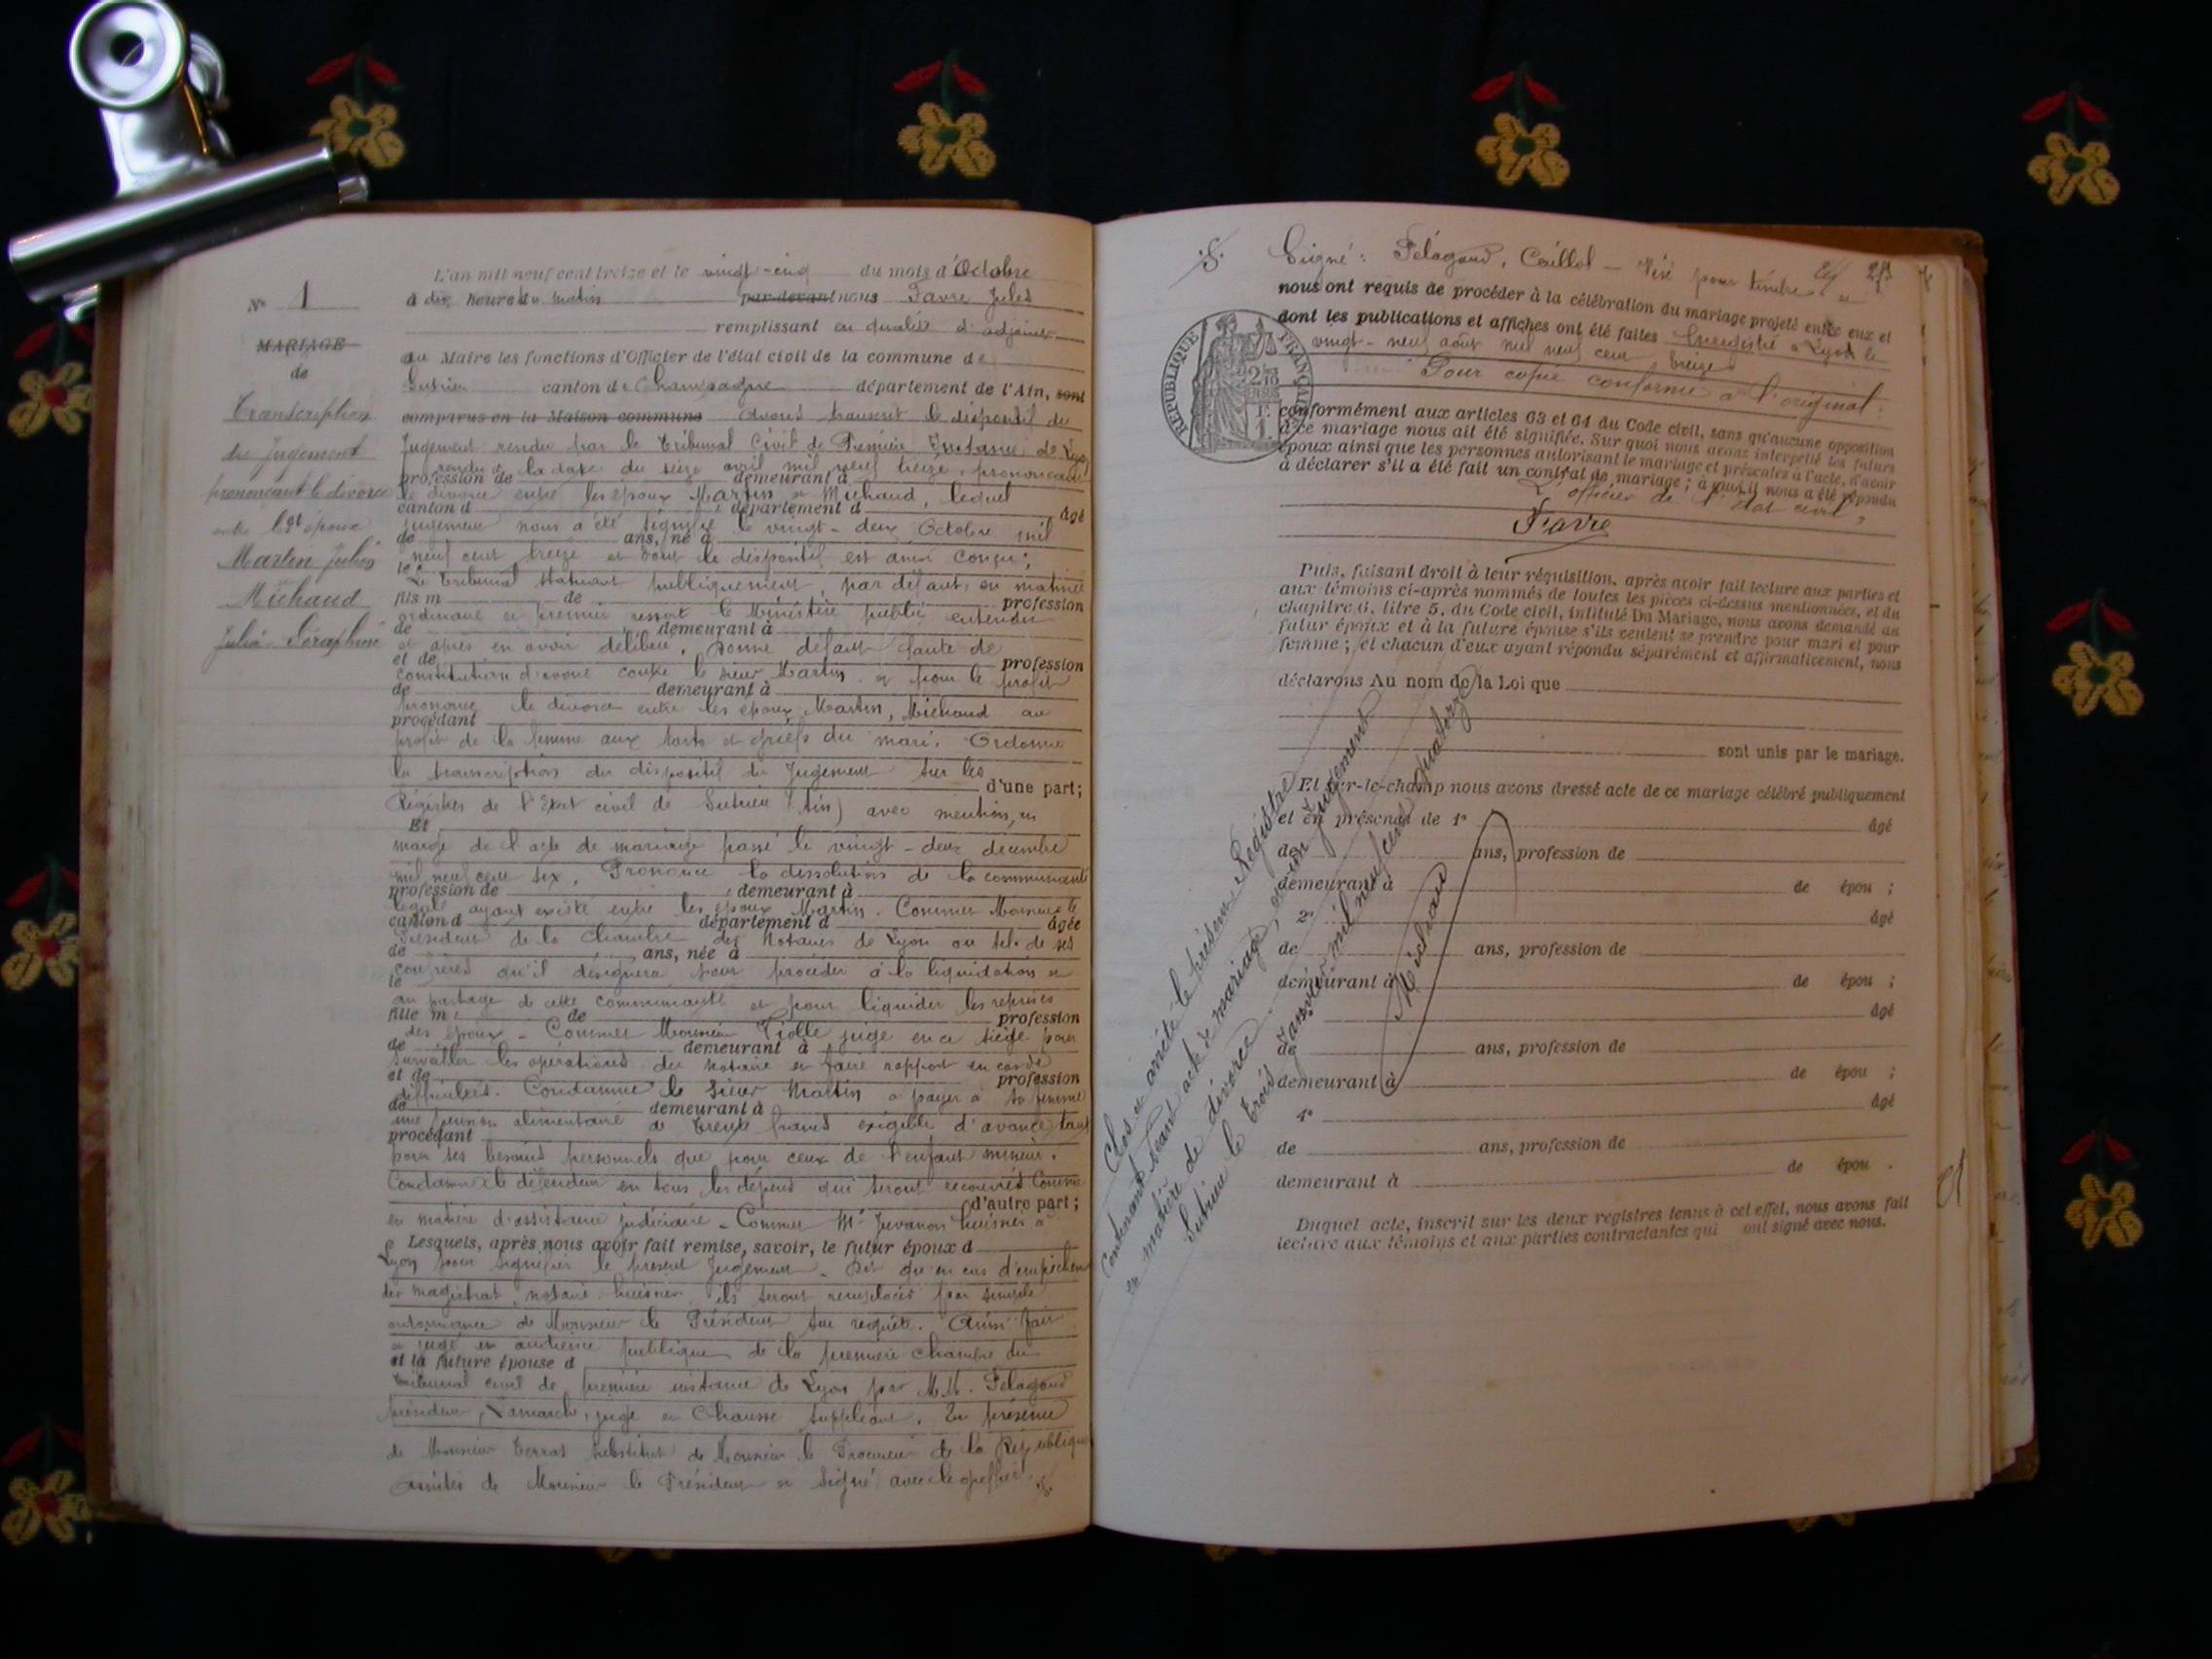 L'an mil neuf cent treize et le vingt-cinq du mois d'Octobre
N° 1
à dix heures du matin par devant nous Favre Jules
remplissant en qualité d'adjoint
MARIAGE
au Maire les fonctions d'Officier de l'état civil de la commune de
de
Sutrieu canton de Champagne département de l'Ain, sont
Transcription
comparus en la Maison commune avons transcrit le dispositif du
du Jugement
Jugement rendu par le Tribunal Civil de Première Instance de Lyon
rendu à la date du seize avril mil neuf treize, prononçant
profession de demeurant à
prononçant le divorce
le divorce entre les époux Martin et Michaud, lequel
canton d département d âgé
entre les époux
jugement nous a été signifié le vingt-deux Octobre mil
de ans, né à
Martin Julien
neuf cent treize et dont le dispositif est ainsi conçu;
le
Le Tribunal statuant publiquement, par défaut en matière
Michaud
fils m de profession
ordinaire et premier ressort le Ministère public entendu
de demeurant à
Julie Séraphine
et après en avoir délibéré, Donne défaut faute de
et de profession
constitution d'avoué contre le sieur Martin et pour le profit
de demeurant à
prononce le divorce entre les époux Martin, Michaud au
procédant
profit de la femme aux torts et griefs du mari. Ordonne
la transcription du dispositif du Jugement sur les
d'une part;
Régistres de l'Etat civil de Sutrieu (Ain) avec mention, en
Et
marge de l'acte de mariage passé le vingt-deux décembre
mil neuf cent six. Prononce la dissolution de la communauté
profession de demeurant à
légale ayant existé entre les époux Martin. Commet Monsieur le
canton d département d âgée
Président de la Chambre des Notaires de Lyon ou tel de ses
de ans, née à
confrères qu'il désignera pour procéder à la liquidation et
le
au partage de cette communauté et pour liquider les reprises
fille m de profession
des époux - Commet Monsieur juge en ce siège pour
de demeurant à
surveiller les opérations du notaire et faire rapport en cas de
et de profession
difficultés. Condamne le sieur Martin à payer à sa femme
de demeurant à
une pension alimentaire de trente francs exigible d'avance tant
procédant
pour ses besoins personnels que pour ceux de l'enfant mineur.
Condamne le défendeur en tous les dépens qui seront recouvrés comme
d'autre part;
en matière d'assistance judiciaire - Commet Me Juvanon huissier à
Lesquels, après nous avoir fait remise, savoir, le futur époux d
Lyon pour signifier le présent Jugement - Dit qu'en cas d'empêchement
des magistrat, notaire huissier, ils seront remplacés par simple
ordonnance de Monsieur le Président sur requête. Ainsi fait
et jugé en audience publique de la première Chambre du
et la future épouse d
Tribunal civil de première instance de Lyon par M.M. Pélagaud
président, Lamarche, juge et Chausse suppléant. En présence
de Monsieur Terras substitut de Monsieur le Procureur de la République
assistés de Monsieur le Président et signé avec le greffier.
Signé: Pélagaud, Caillol - Visé pour timbre et
nous ont requis de procéder à la célébration du mariage projeté entre eux et
dont les publications et affiches ont été faites Enregistré à Lyon le
vingt-neuf août mil neuf cent treize
Pour copie conforme à l'original:
REPUBLIQUE FRANÇAISE
conformément aux articles 63 et 64 du Code civil, sans qu'aucune opposition
à ce mariage nous ait été signifiée. Sur quoi nous avons interpellé les futurs
époux ainsi que les personnes autorisant le mariage et présentes à l'acte, d'avoir
à déclarer s'il a été fait un contrat de mariage; à quoi il nous a été répondu
L'officier de l'état civil,
Favre
Puis, faisant droit à leur réquisition, après avoir fait lecture aux parties et
aux témoins ci-après nommés de toutes les pièces ci-dessus mentionnées, et du
chapitre 6, titre 5, du Code civil, intitulé Du Mariage, nous avons demandé au
futur époux et à la future épouse s'ils veulent se prendre pour mari et pour
femme; et chacun d'eux ayant répondu séparément et affirmativement, nous
déclarons Au nom de la Loi que
sont unis par le mariage.
Et sur-le-champ nous avons dressé acte de ce mariage célébré publiquement
et en présence de 1° âgé
de ans, profession de
demeurant à de épou ;
2° âgé
de ans, profession de
demeurant à de épou ;
âgé
de ans, profession de
demeurant à de épou ;
4° âgé
de ans, profession de
demeurant à de épou .
Duquel acte, inscrit sur les deux registres tenus à cet effet, nous avons fait
lecture aux témoins et aux parties contractantes qui ont signé avec nous.
Clos et arrêté le présent Registre
Contenant Néant acte de mariage, et un Jugement
en matière de divorce
Sutrieu le trois Janvier mil neuf cent quatorze
Michaud